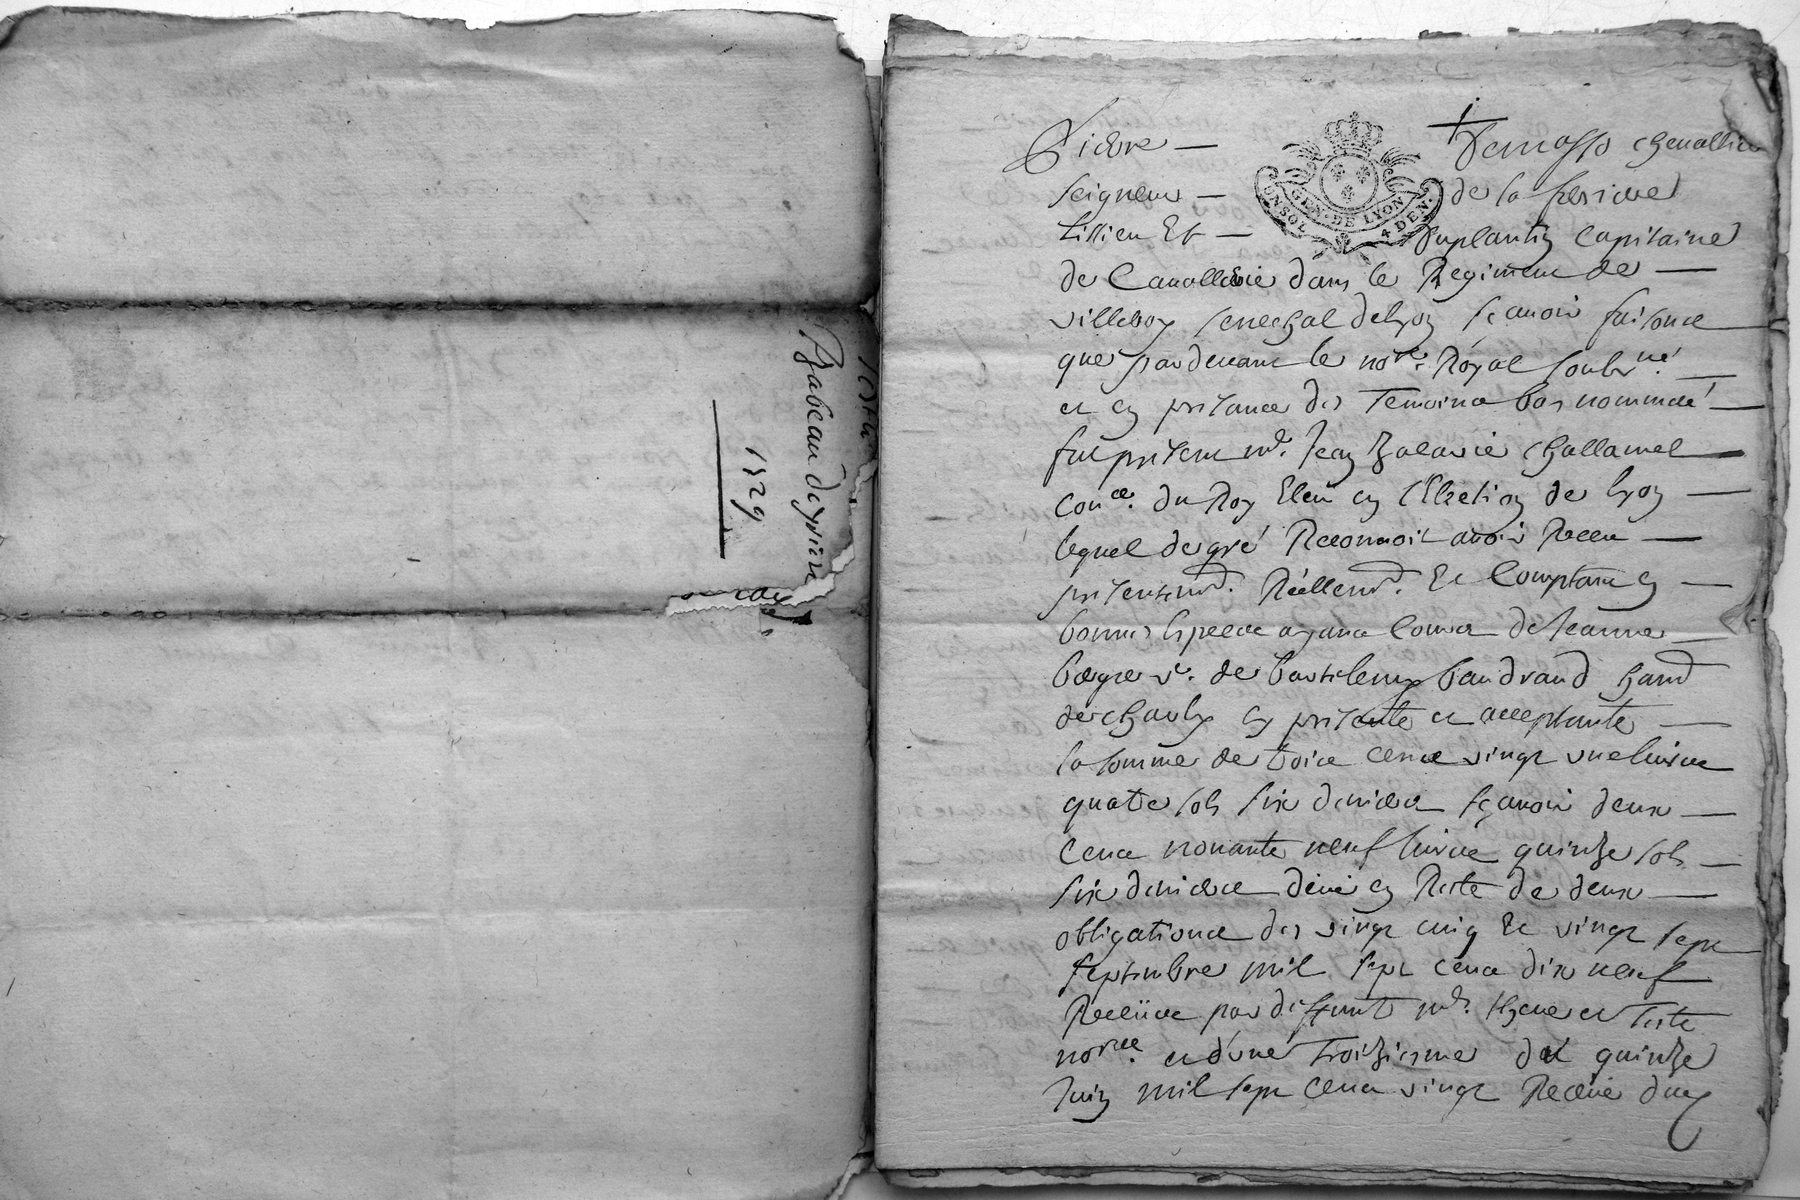 Babeau
1729
Pierre
chevallier
GEN · DE LYON
4 DEN ·
seigneur
de la
tissieu Et
Duplantin Capitaine
de Cavallerie dans le Regiment de
villeroy senechal de lyon sçavoir faisons
que pardevant le no.re Royal soubs.né
et en presance des Temoins bas nommés
fut present m.r Jean challamel
Con.er du Roy Eleu en l'Election de lyon
lequel de gré Reconnoit avoir Receu
presentem.t Réellem.t Et Comptant en
bonnes Especes ayans Cours de Jeanne
v.e de bartelemy baudrand
en presante et acceptante
la somme de trois cens vingt une livres
quatre sols six deniers sçavoir deux
Cens nonante neuf livres quinze sols
six deniers en Reste de deux
obligations des vingt cinq Et vingt sept
septembre mil sept cens dix neuf
Receües par deffunt m.r et
no.res et d'une Troizieme du quinze
Juin mil sept Cens vingt Receüe